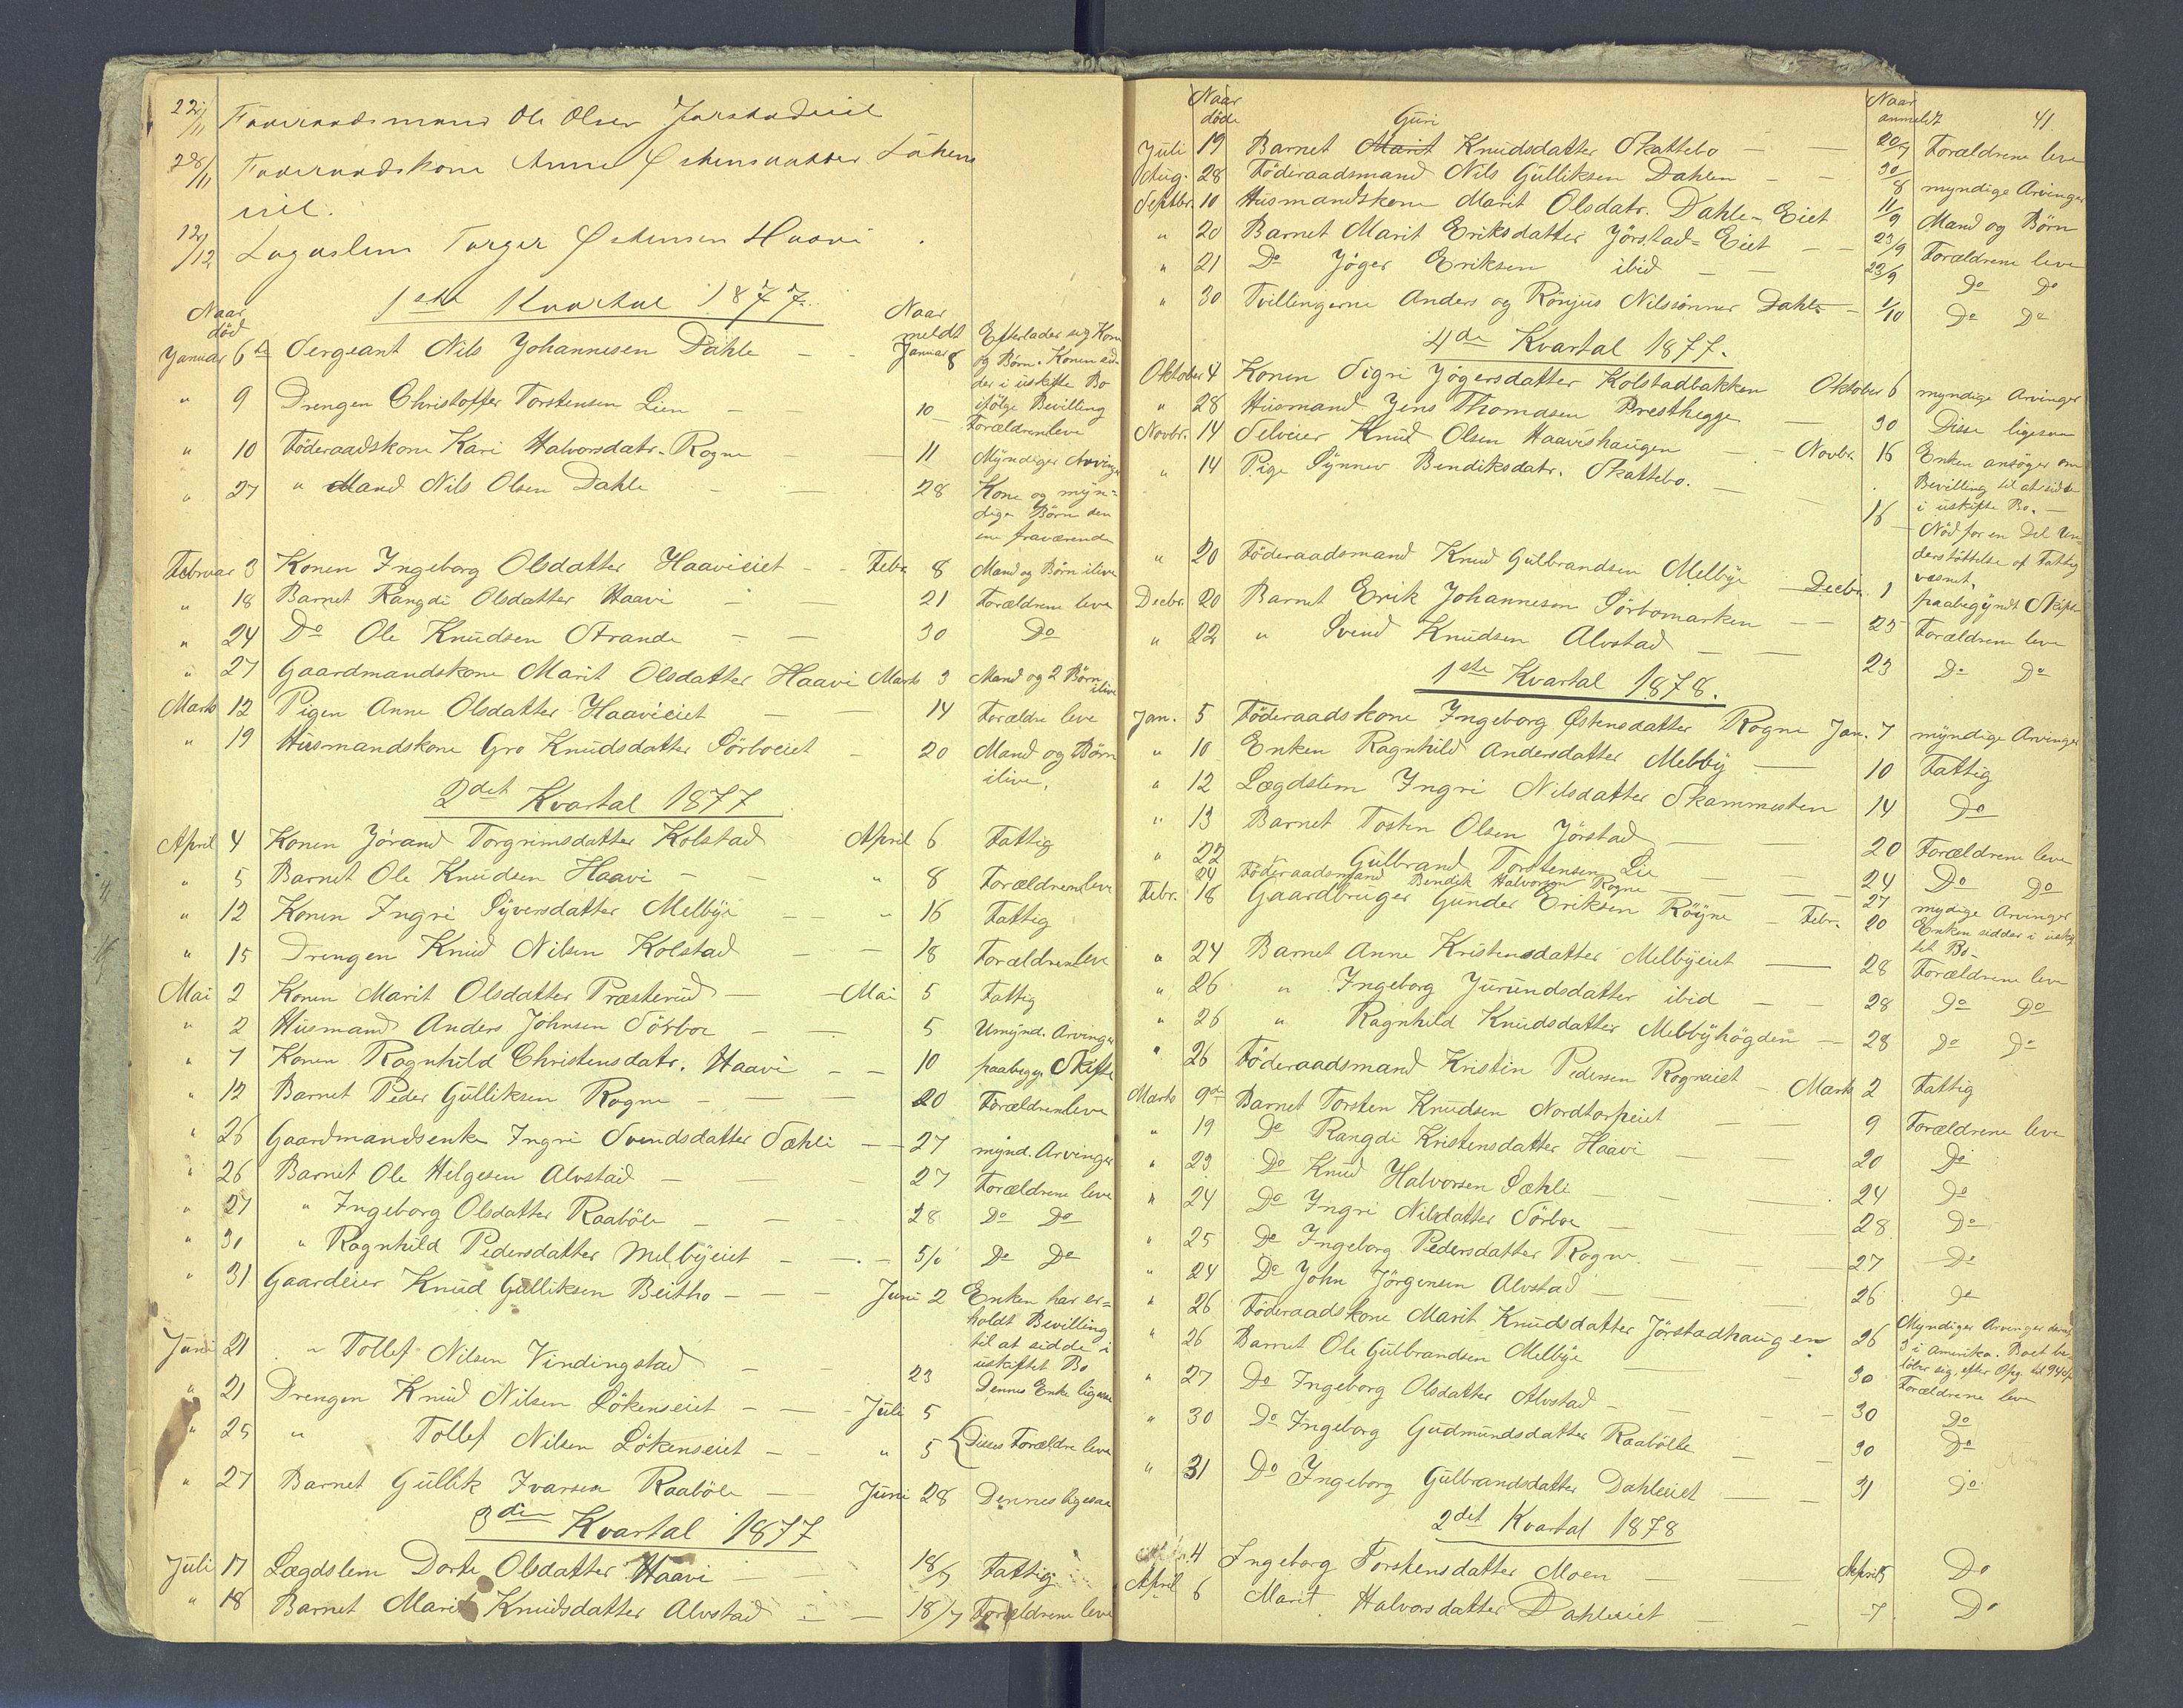 22/11 Føderaadsmand Ole Olsen Jørstadeiet
28/11 Føderaadskone Anne Østensdatter Løkens
eiet.
12/12 Lægdslem Torger Østensen Haavi
1ste Kvartal 1877.
Naar død
Naar meldt
Januar 6te Sergeant Nils Johannesen Dahle – Januar 8 Efterlader sig Kone
og Børn. Konen sid-
der i uskifte Bo
ifølge Bevilling
" 9 Drengen Christoffer Torstensen Lien – 10 Forældrene leve
" 10 Föderaadskone Kari Halvorsdatr. Rogne – 11 Myndige Arvinger
" 27 " Mand Nils Olsen Dahle – 28 Kone og myn=
dige Börn den
ene fraværende
Februar 3 Konen Ingeborg Olsdatter Haavieiet – Febr. 8 Mand og Börn ilive
" 18 Barnet Rangdi Olsdatter Haavi – 21 Forældrene leve
" 24 Do Ole Knudsen Strande – 30 Do
" 27 Gaardmandskone Marit Olsdatter Haavi Marts 3 Mand og 2 Börn
ilive
Marts 12 Pigen Anne Olsdatter Haavieiet – 14 Forældre leve
" 19 Husmandskone Gro Knudsdatter Sörboeiet – 20 Mand og Börn
ilive.
2det Kvartal 1877
April 4 Konen Jörand Torgrimsdatter Kolstad April 6 Fattig
" 5 Barnet Ole Knudsen Haavi – " 8 Forældrene leve
" 12 Konen Ingri Syversdatter Melbye – " 16 Fattig
" 15 Drengen Knud Nilsen Kolstad – 18 Forældrene leve
Mai 2 Konen Marit Olsdatter Præsterud – Mai 5 Fattig
" 2 Husmand Anders Johnsen Sörboe – 5 Umynd. Arvinger
" 7 Konen Ragnhild Christensdatr. Haavi – 10 paabegy. Skifte
" 12 Barnet Peder Gulliksen Rogne – 20 Forældrene leve
" 26 Gaardmandsenke Ingri Svendsdatter Sæhli – 27 mynd. Arvinger
" 26 Barnet Ole Helgesen Alvstad – 27 Forældrene leve
" 27 " Ingeborg Olsdatter Raaböle – 28 Do Do
" 30 " Ragnhild Pedersdatter Melbyeiet – 5/6 Do Do
" 31 Gaardeier Knud Gulliksen Beitho – Juni 2 Enken har er=
holdt Bevilling
til at sidde i
uskiftet Bo
Juni 21 " Tollef Nilsen Vindingstad – 23 Dennes Enke ligesaa
" 21 Drengen Knud Nilsen Lökenseiet – Juli 5
" 25 " Tollef Nilsen Lökenseiet – " 5 Disses Forældre leve
" 27 Barnet Gullik Ivarsen Raaböle – Juni 28 Dennes ligesaa
3die Kvartal 1877
Juli 17 Lægdslem Dorte Olsdatter Haavi – 18/7 Fattig
" 18 Barnet Marit Knudsdatter Alvstad – 18/7 Forældrene leve
Naar döde
Naar anmeldt
41.
Guri
Juli 19 Barnet Marit Knudsdatter Skattebo – 20/7 Forældrene leve
Aug. 28 Föderaadsmand Nils Gulliksen Dahlen – 30/8 myndige Arvinger
Septbr. 10 Husmandskone Marit Olsdatr. Dahle-Eiet 11/9 Mand og Börn
" 20 Barnet Marit Eriksdatter Jörstad=Eiet – 23/9 Forældrene leve
" 21 Do Jöger Eriksen ibid – 23/9 Do Do
" 30 Tvillingerne Anders og Rönjus Nilssönner Dahle – 1/10 Do Do
4de Kvartal 1877.
Oktober 4 Konen Sigri Jögersdatter Kolstadbakken Oktober 6 myndige Arvinger
" 28 Husmand Jens Thomasen Presthegge – 30 Disse ligesaa
Novbr. 14 Selveier Knud Olsen Haavishaugen – Novbr. 16 Enken ansöger om
Bevilling til at sidde
i uskifte Bo. –
" 14 Pige Synnev Bendiksdatr. Skattebo. – 16 Nöd for en Del Un-
derstöttelse af Fattig
væsnet.
" 20 Föderaadsmand Knud Gulbrandsen Melbye – Decbr. 1 paabegyndt Skifte
Decbr. 20 Barnet Erik Johannesen Sörbomarken – 25 Forældrene leve
" 22 " Svend Knudsen Alvstad – 23 Do Do
1ste Kvartal 1878.
Jan. 5 Föderaadskone Ingeborg Østensdatter Rogne Jan. 7 myndige Arvinger
" 10 Enken Ragnhild Andersdatter Melbby – 10 Fattig
" 12 Lægdslem Ingri Nilsdatter Skammesten 14 Do
" 13 Barnet Tosten Olsen Jörstad – 20 Forældrene leve
" 22 Gulbrand Torstensen Lie – 24 Do Do
24 Föderaadsmand Bendik Halvorsen Rogne – 27 mydige Arvinger
Febr. 18 Gaardbruger Gunder Eriksen Röyne – Febr. 20 Enken sidder i uskif
tet Bo-
" 24 Barnet Anne Kristensdatter Melbyeiet – 28 Forældrene leve
" 26 " Ingeborg Jurundsdatter ibid – 28 Do Do
" 26 " Ragnhild Knudsdatter Melbbyhögden – 28 Do Do
" 26 Föderaadsmand Kristin Pedersen Rogneeiet – Marts 2 Fattig
Marts 9de Barnet Torsten Knudsen Nordtorpeiet – 9 Forældrene leve
" 19 Do Rangdi Kristensdatter Haavi – 20 Do
" 23 Do Knud Halvorsen Sæhli – 24 Do
" 24 Do Ingri Nilsdatter Sörboe – 28 Do
" 25 Do Ingeborg Pedersdatter Rogne – 27 Do
" 24 Do John Jörgensen Alvstad – 26 Do
" 26 Föderaadskone Marit Knudsdatter Jörstadhaugen 26 Myndige Arvinger
3 i Amerika. Boet be
löber sig efter Opg. til
" 26 Barnet Ole Gulbrandsen Melbye – 30 Forældrene leve
" 27 Do Ingeborg Olsdatter Alvstad – 30 Do
" 30 Do Ingeborg Gudmundsdatter Raabölle – 30 Do
" 31 Do Ingeborg Gulbrandsdatter Dahleeiet – 31 Do
2det Kvartal 1878
4 Ingeborg Torstensdatter Moen – April 5 Do
April 6 Marit Halvorsdatter Dahleeiet – 7 Do